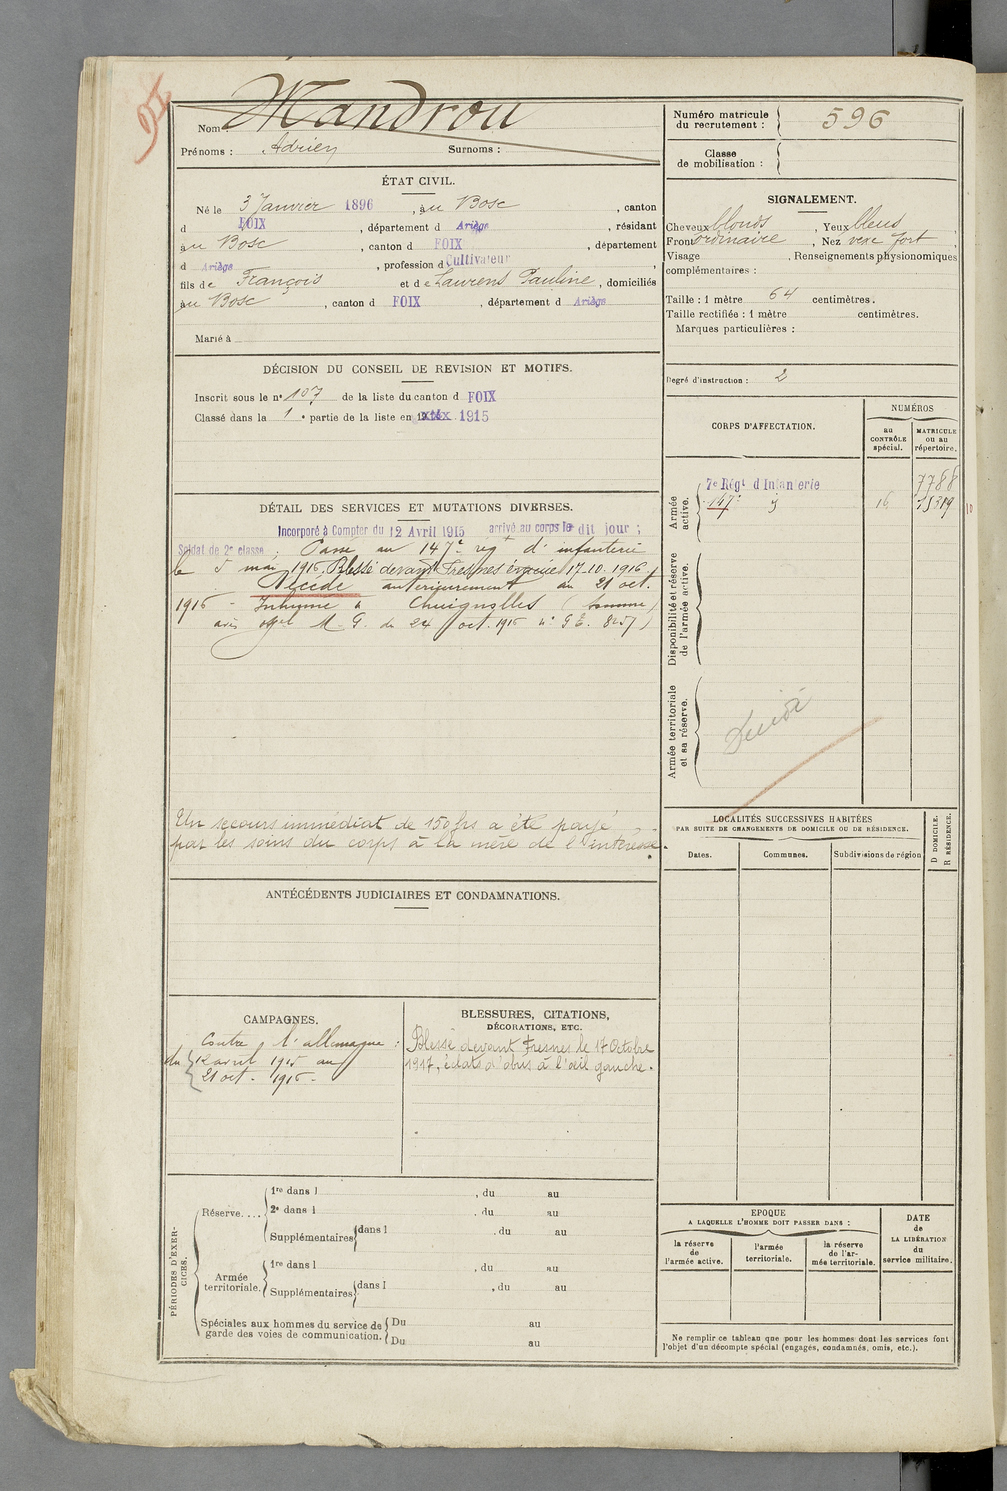 Nom : Mandrou
Prénoms : Adrien Surnoms :
ÉTAT CIVIL.
Né le 3 Janvier 1896, au Bosc, canton
d FOIX, département d Ariège, résidant
au Bosc, canton d FOIX, département
d Ariège, profession d Cultivateur,
fils de François et de Laurens Pauline, domiciliés
au Bosc, canton d FOIX, département d Ariège
Marié à
DÉCISION DU CONSEIL DE REVISION ET MOTIFS.
Inscrit sous le n° 107 de la liste du canton d FOIX
Classé dans la 1e partie de la liste en 1915
DÉTAIL DES SERVICES ET MUTATIONS DIVERSES.
Incorporé à Compter du 12 Avril 1915 arrivé au corps le dit jour ;
Soldat de 2e classe ; Passé au 147e reg t d'infanterie
le 5 mai 1916. Blessé devant Fresnes évacué 17-10-1916.
Décédé antérieurement au 21 oct.
1916 - Inhumé à Chuignolles (Somme)
avis M. G. du 24 oct. 1916 n°
Un secours immédiat de 150 frs a été payé
par les soins du corps à la mère de l'intéressé.
ANTÉCÉDENTS JUDICIAIRES ET CONDAMNATIONS.
CAMPAGNES.
Contre l'allemagne :
du 12 avril 1915 au
21 oct. 1916 -
BLESSURES, CITATIONS,
DÉCORATIONS, ETC.
Blessé devant Fresnes le 17 Octobre
1917, éclats d'obus à l'œil gauche.
PÉRIODES D'EXERCICES.
Réserve....
1re dans l , du au
2e dans l , du au
Supplémentaires dans l , du au
Armée
territoriale.
1re dans l , du au
Supplémentaires dans l , du au
Spéciales aux hommes du service de
garde des voies de communication.
Du au
Du au
Numéro matricule
du recrutement : 596
Classe
de mobilisation :
SIGNALEMENT.
Cheveux blonds, Yeux bleus
Front ordinaire, Nez vexe fort,
Visage , Renseignements physionomiques
complémentaires :
Taille : 1 mètre 64 centimètres.
Taille rectifiée : 1 mètre centimètres.
Marques particulières :
Degré d'instruction : 2
CORPS D'AFFECTATION.
NUMÉROS
au
CONTRÔLE
spécial.
MATRICULE
ou au
répertoire.
Armée
active.
7e Régt d'Infanterie 7788
147e 16
Disponibilité et réserve
de l'armée active.
Armée territoriale
et sa réserve.
LOCALITÉS SUCCESSIVES HABITÉES
PAR SUITE DE CHANGEMENTS DE DOMICILE OU DE RÉSIDENCE.
D DOMICILE.
R RÉSIDENCE.
Dates. Communes. Subdivisions de région
EPOQUE
A LAQUELLE L'HOMME DOIT PASSER DANS :
la réserve
de
l'armée active.
l'armée
territoriale.
la réserve
de l'ar-
mée territoriale.
DATE
de
LA LIBÉRATION
du
service militaire.
Ne remplir ce tableau que pour les hommes dont les services font
l'objet d'un décompte spécial (engagés, condamnés, omis, etc.).